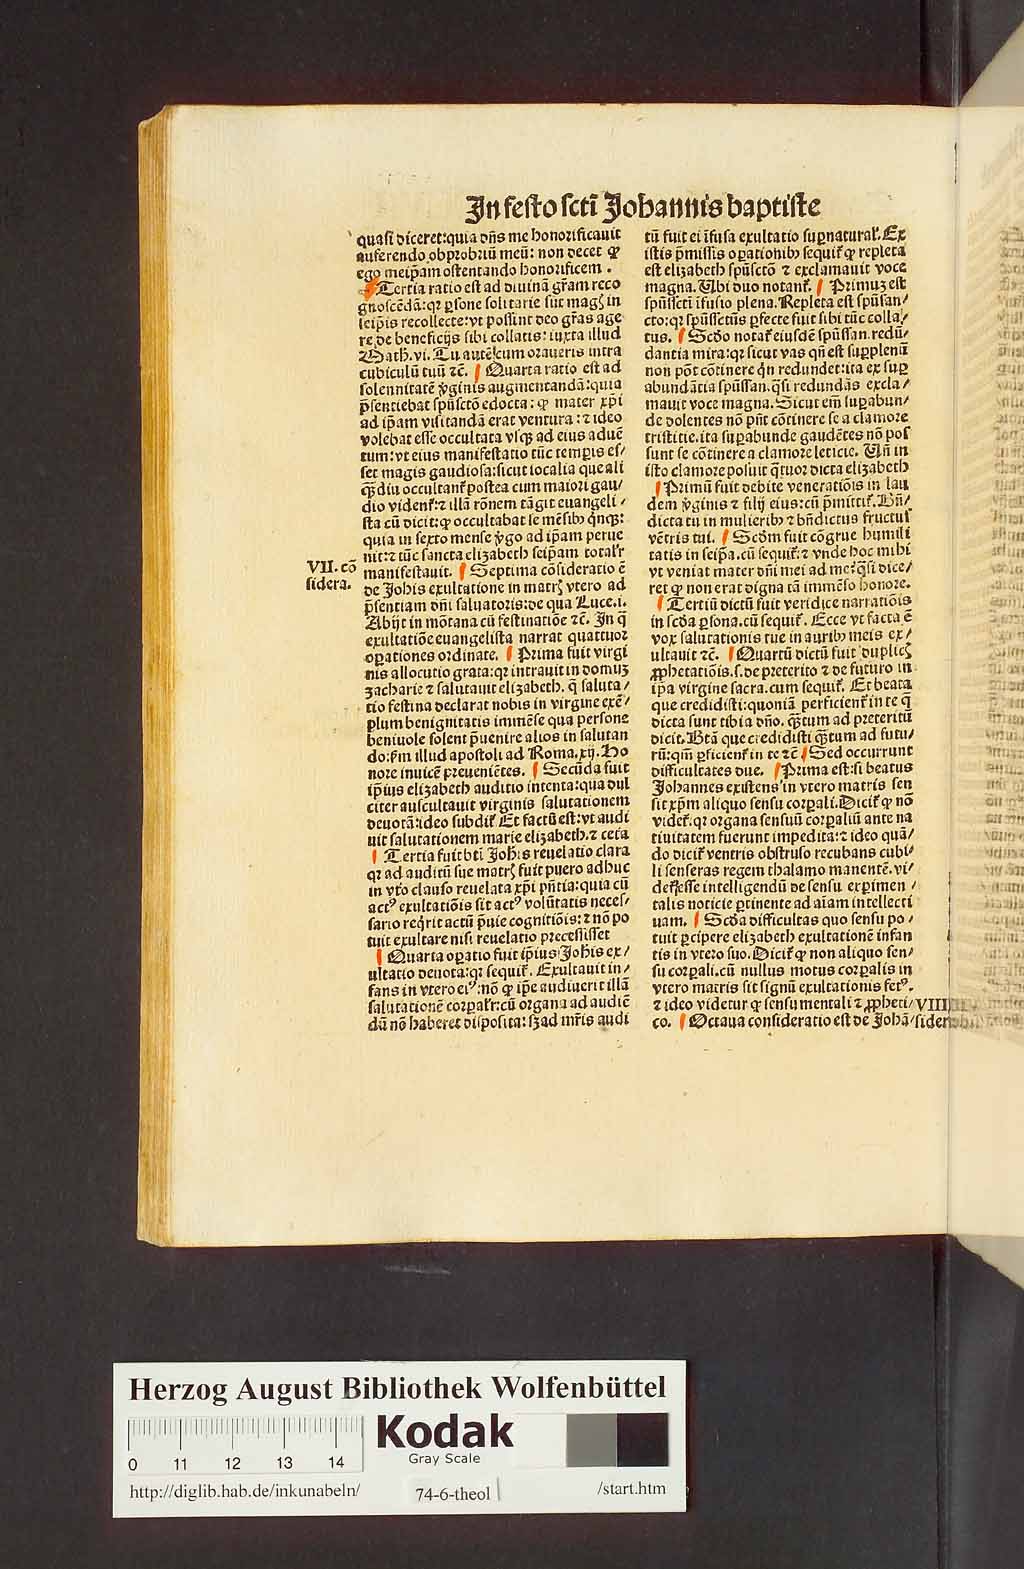 In festo scti Johannis baptiste
quasi diceret: quia dñs me honorificauit
auferendo obprobriũ meũ: non decet ꝙ
ego meip̃am ostentando honorificem.
Tertia ratio est ad diuinã gr̃am reco
gnoscẽdã: qꝛ ꝑsone solitarie sũt magꝭ in
seip̃is recollecte: vt possint deo gr̃as age
re de beneficijs sibi collatis: iuxta illud
Math. vi. Tu autẽ cum oraueris intra
cubiculũ tuũ ⁊c̃. Quarta ratio est ad
solennitatẽ ꝟginis augmentandã: quia
p̃sentiebat spũsctõ edocta: ꝙ mater xp̃i
ad ip̃am visitandã erat ventura: ⁊ ideo
volebat esse occultata vsqꝫ ad eius aduẽ
tum: vt eius manifestatio tũc tempꝑis es/
set magis gaudiosa: sicut iocalia que ali
qᷓdiu occultanť postea cum maiori gau/
dio videnť: ⁊ illã rõnem tãgit euangeli/
sta cũ dicit: ꝙ occultabat se mẽsibꝰ qͥnqꝫ:
quia in sexto mense ꝟgo ad ip̃am perue
nit: ⁊ tũc sancta elizabeth seip̃am totalr̃
manifestauit. Septima cõsideratio ẽ
VII. cõ
sidera.
de Johis exultatione in matrꝭ vtero ad
p̃sentiam dñi saluatoris: de qua Luce. i.
Abijt in mõtana cũ festinatiõe ⁊c̃. In q̃
exultatiõe euangelista narrat quattuor
oꝑationes ordinate. Prima fuit virgi
nis allocutio grata: qꝛ intrauit in domuꝫ
zacharie ⁊ salutauit elizabeth. q̃ saluta/
tio festina declarat nobis in virgine exẽ/
plum benignitatis immẽse qua persone
beniuole solent p̃uenire alios in salutan
do: ẜm illud apostoli ad Roma. xij. Ho
nore inuicẽ preueniẽtes. Secũda fuit
ip̃ius elizabeth auditio intenta: qua dul
citer auscultauit virginis salutationem
deuotã: ideo subdiť Et factũ est: vt audi
uit salutationem marie elizabeth. ⁊ ceťa
Tertia fuit bt̃i Joh̃is reuelatio clara
qꝛ ad auditũ sue matrꝭ fuit puero adhuc
in vťo clauso reuelata xp̃i pñtia: quia cũ
actꝰ exultatiõis sit actꝰ volũtatis neces/
sario reqͥrit actũ p̃uie cognitiõis: ⁊ nõ po
tuit exultare nisi reuelatio precessisset
Quarta oꝑatio fuit ip̃ius Joh̃is ex/
ultatio deuota: qꝛ sequiť. Exultauit in/
fans in vtero eiꝰ: nõ ꝙ ip̃e audiuerit illã
salutationẽ corꝑalr̃: cũ organa ad audiẽ
dũ nõ haberet disposita: sꝫ ad mr̃is audi
tũ fuit ei ĩfusa exultatio suꝑnatural̃. Ex
istis p̃missis oꝑationibꝰ sequiť ꝙ repleta
est elizabeth spũsctõ ⁊ exclamauit voce
magna. Ubi duo notanť. Primuꝫ est
spũsscti ĩfusio plena. Repleta est spũsan/
cto: qꝛ spũssctũs ꝑfecte fuit sibi tũc colla/
tus. Scdo notať eiusdẽ spũssan. redũ/
dantia mira: qꝛ sicut vas qñ est suꝑplenũ
non põt cõtinere qͥn redundet: ita ex suꝑ
abundãtia spũssan. qͣsi redundãs excla/
mauit voce magna. Sicut em̃ suꝑabun/
de dolentes nõ pñt cõtinere se a clamore
tristitie. ita suꝑabunde gaudẽtes nõ pos
sunt se cõtinere a clamore leticie. Uñ in
isto clamore posuit qͣtuor dicta elizabeth
Primũ fuit debite veneratiõis in lau
dem ꝟginis ⁊ filij eius: cũ p̃mittiť. Bñ/
dicta tu in mulieribꝰ ⁊ bñdictus fructus
vẽtris tui. Scdm fuit cõgrue humili
tatis in seip̃a. cũ sequiť: ⁊ vnde hoc mihi
vt veniat mater dñi mei ad me: qͣsi dice/
ret ꝙ non erat digna tã immẽso honore.
Tertiũ dictũ fuit veridice narratiõis
in scda ꝑsona. cũ sequiť. Ecce vt facta ẽ
vox salutationis tue in auribꝰ meis ex/
ultauit ⁊c̃. Quartũ dictũ fuit duplicꝭ
ꝓphetatiõis. ſ. de preterito ⁊ de futuro in
ip̃a virgine sacra. cum sequiť. Et beata
que credidisti: quoniã perficienť in te q̃
dicta sunt tibi a dño. qᷓtum ad preteritũ
dicit. Btã que credidisti qᷓtum ad futu/
rũ: qm̃ ꝑficienť in te ⁊c̃ Sed occurrunt
difficultates due. Prima est: si beatus
Johannes existens in vtero matris sen
sit xp̃m aliquo sensu corꝑali. Diciť ꝙ nõ
videť. qꝛ organa sensuũ corꝑaliũ ante na
tiuitatem fuerunt impedita: ⁊ ideo quã/
do diciť ventris obstruso recubans cubi/
li senseras regem thalamo manentẽ. vi/
deť esse intelligendũ de sensu exꝑimen/
talis noticie ꝑtinente ad aĩam intellecti
uam. Scda difficultas quo sensu po/
tuit ꝑcipere elizabeth exultationẽ infan
tis in vtero suo. Diciť ꝙ non aliquo sen/
su corꝑali. cũ nullus motus corꝑalis in
vtero matris sit signũ exultationis fetꝰ.
⁊ ideo videtur ꝙ sensu mentali ⁊ ꝓpheti/
co. Octaua consideratio est de Johã/
VIII
sider
Herzog August Bibliothek Wolfenbüttel
Kodak
Gray Scale
0 11 12 13 14
http://diglib.hab.de/inkunabeln/ 74-6-theol /start.htm